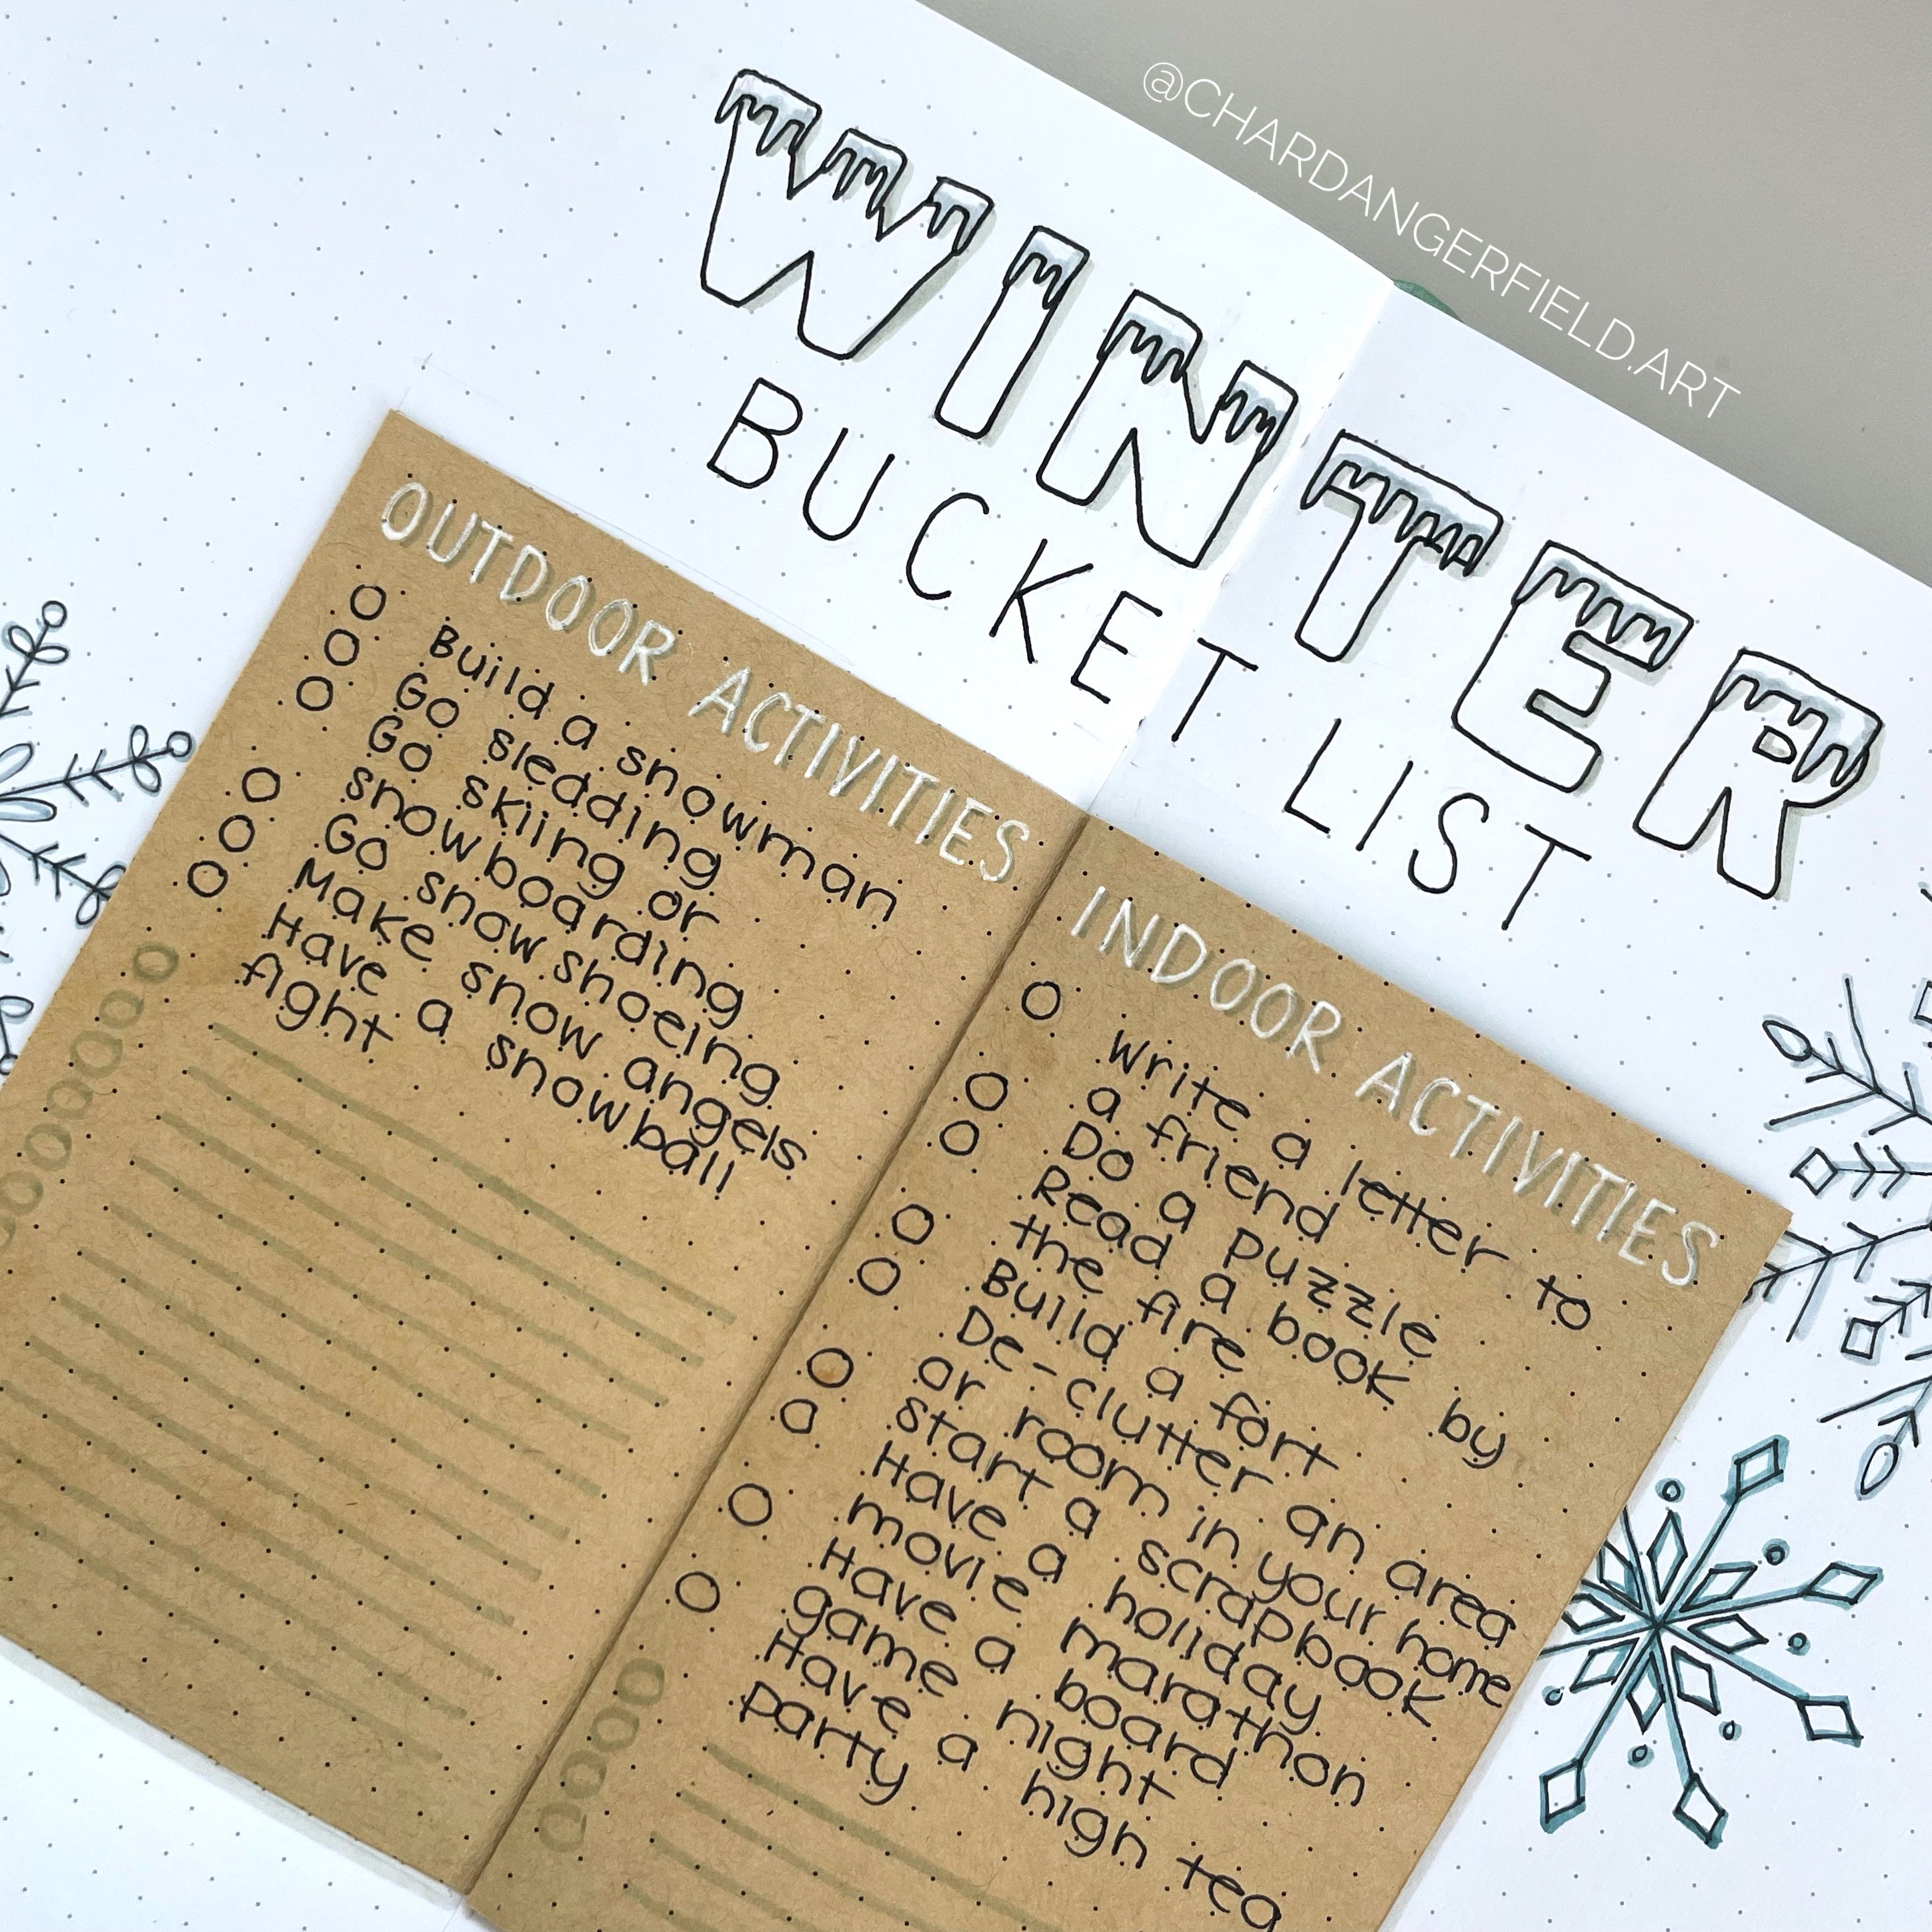 @CHARDANGERFIELD.ART
WINTER
BUCKET LIST
OUTDOOR ACTIVITIES
Build a snowman
Go sledding
Go skiing or
snowboarding
Go snow shoeing
Make snow angels
Have a snowball
fight
INDOOR ACTIVITIES
Write a letter to
a friend
Do a puzzle
Read a book by
the fire
Build a fort
De-clutter an area
or room in your home
Start a scrapbook
Have a holiday
movie marathon
Have a board
game night
Have a high tea
party